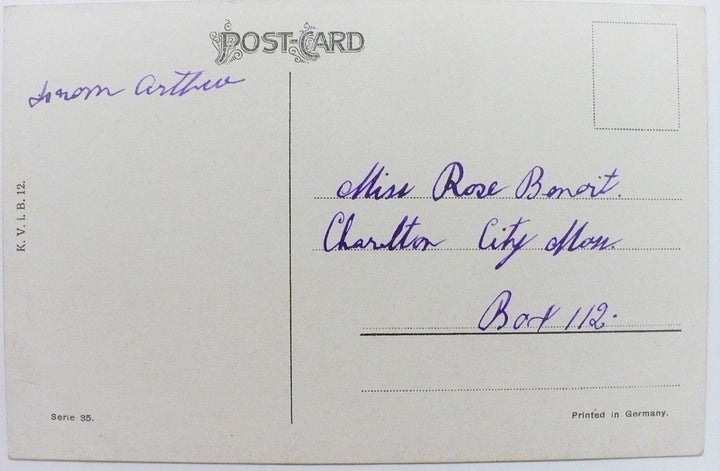 POST-CARD
from Arthur
K. V. i. B. 12.
Miss Rose Benoit.
Charlton City Mass.
Box 112.
Serie 35.
Printed in Germany.